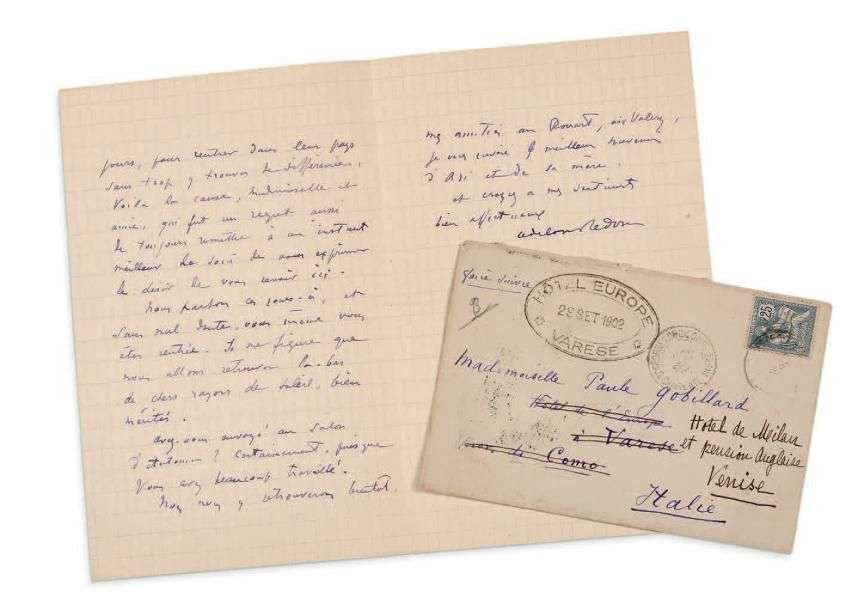 jours, pour rentrer dans leur pays
sans trop y trouver de différences.
Voilà la cause, mademoiselle et
amie, qui fut un regret aussi
de toujours remettre à un instant
meilleur la joie de vous exprimer
le désir de vous savoir ici -
Nous partons ces jours-ci, et
sans nul doute, vous même vous
êtes rentrée. Je me figure que
nous allons retrouver là-bas
de chers rayons de soleil, bien
mérités.
avez-vous envoyé au Salon
d'Automne ? Certainement, puisque
Vous avez beaucoup travaillé.
Nous nous y retrouverons bientôt.
mes amitiés aux Rouart, aux Valéry,
je vous envoie le meilleur souvenir
d'Ari et de sa mère,
et croyez à mes sentiments
bien affectueux
odilon Redon
faire suivre
HOTEL EUROPE
28 SET 1902
VARESE
25
Mademoiselle Paule Gobillard
Hotel de l'Europe
à Varese
Como
Hotel de Milan
et pension anglaise
Venise
Italie